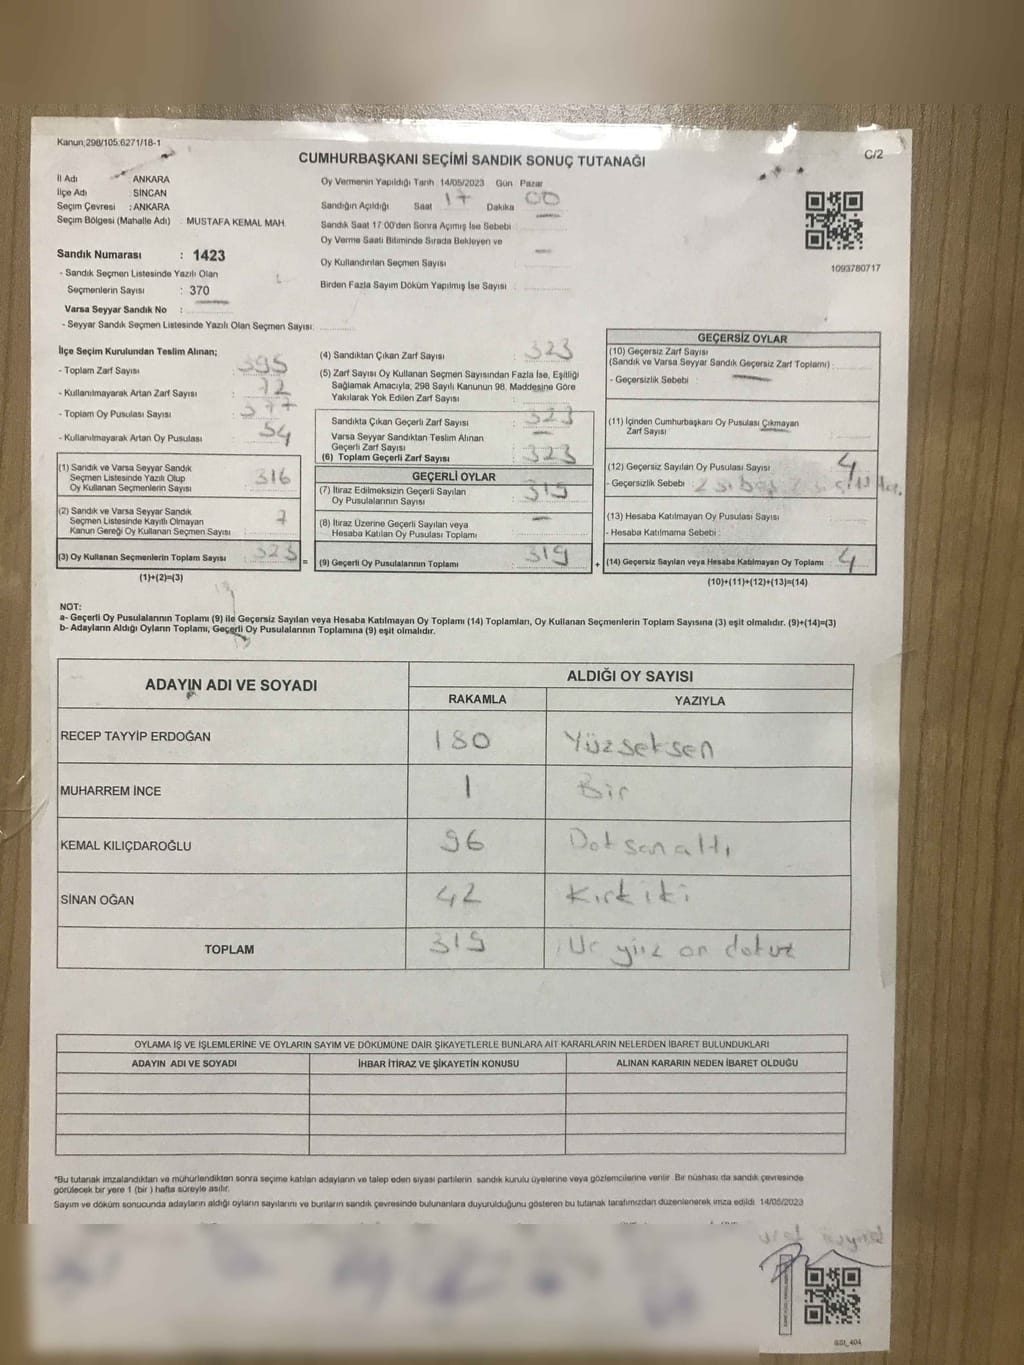 Kanun;298/105;6271/18-1
C/2
CUMHURBAŞKANI SEÇİMİ SANDIK SONUÇ TUTANAĞI
İl Adı : ANKARA
İlçe Adı : SİNCAN
Seçim Çevresi : ANKARA
Seçim Bölgesi (Mahalle Adı) : MUSTAFA KEMAL MAH.
Oy Vermenin Yapıldığı Tarih 14/05/2023 Gün Pazar
Sandığın Açıldığı Saat 17 Dakika 00
Sandık Saat 17:00'den Sonra Açımış İse Sebebi
Oy Verme Saati Bitiminde Sırada Bekleyen ve
Oy Kullandırılan Seçmen Sayısı :
Birden Fazla Sayım Döküm Yapılmış İse Sayısı :
1093780717
Sandık Numarası : 1423
- Sandık Seçmen Listesinde Yazılı Olan
Seçmenlerin Sayısı : 370
Varsa Seyyar Sandık No :
- Seyyar Sandık Seçmen Listesinde Yazılı Olan Seçmen Sayısı:
İlçe Seçim Kurulundan Teslim Alınan;
- Toplam Zarf Sayısı : 395
- Kullanılmayarak Artan Zarf Sayısı : 72
- Toplam Oy Pusulası Sayısı : 377
- Kullanılmayarak Artan Oy Pusulası : 54
(1) Sandık ve Varsa Seyyar Sandık
Seçmen Listesinde Yazılı Olup
Oy Kullanan Seçmenlerin Sayısı : 316
(2) Sandık ve Varsa Seyyar Sandık
Seçmen Listesinde Kayıtlı Olmayan
Kanun Gereği Oy Kullanan Seçmen Sayısı : 7
(3) Oy Kullanan Seçmenlerin Toplam Sayısı : 323
(1)+(2)=(3)
(4) Sandıktan Çıkan Zarf Sayısı : 323
(5) Zarf Sayısı Oy Kullanan Seçmen Sayısından Fazla İse, Eşitliği
Sağlamak Amacıyla, 298 Sayılı Kanunun 98. Maddesine Göre
Yakılarak Yok Edilen Zarf Sayısı :
Sandıkta Çıkan Geçerli Zarf Sayısı : 323
Varsa Seyyar Sandıktan Teslim Alınan
Geçerli Zarf Sayısı :
(6) Toplam Geçerli Zarf Sayısı : 323
GEÇERLİ OYLAR
(7) İtiraz Edilmeksizin Geçerli Sayılan
Oy Pusulalarının Sayısı : 319
(8) İtiraz Üzerine Geçerli Sayılan veya
Hesaba Katılan Oy Pusulası Toplamı :
= (9) Geçerli Oy Pusulalarının Toplamı : 319
GEÇERSİZ OYLAR
(10) Geçersiz Zarf Sayısı
(Sandık ve Varsa Seyyar Sandık Geçersiz Zarf Toplamı) :
- Geçersizlik Sebebi :
(11) İçinden Cumhurbaşkanı Oy Pusulası Çıkmayan
Zarf Sayısı :
(12) Geçersiz Sayılan Oy Pusulası Sayısı : 4
- Geçersizlik Sebebi :
(13) Hesaba Katılmayan Oy Pusulası Sayısı :
- Hesaba Katılmama Sebebi :
+ (14) Geçersiz Sayılan veya Hesaba Katılmayan Oy Toplamı : 4
(10)+(11)+(12)+(13)=(14)
NOT:
a- Geçerli Oy Pusulalarının Toplamı (9) ile Geçersiz Sayılan veya Hesaba Katılmayan Oy Toplamı (14) Toplamları, Oy Kullanan Seçmenlerin Toplam Sayısına (3) eşit olmalıdır. (9)+(14)=(3)
b- Adayların Aldığı Oyların Toplamı, Geçerli Oy Pusulalarının Toplamına (9) eşit olmalıdır.
ADAYIN ADI VE SOYADI ALDIĞI OY SAYISI
RAKAMLA YAZIYLA
RECEP TAYYİP ERDOĞAN 180 Yüzseksen
MUHARREM İNCE 1 Bir
KEMAL KILIÇDAROĞLU 96 Doksanaltı
SİNAN OĞAN 42 Kırkiki
TOPLAM 319 Üc yüz on dokuz
OYLAMA İŞ VE İŞLEMLERİNE VE OYLARIN SAYIM VE DÖKÜMÜNE DAİR ŞİKAYETLERLE BUNLARA AİT KARARLARIN NELERDEN İBARET BULUNDUKLARI
ADAYIN ADI VE SOYADI İHBAR İTİRAZ VE ŞİKAYETİN KONUSU ALINAN KARARIN NEDEN İBARET OLDUĞU
*Bu tutanak imzalandıktan ve mühürlendikten sonra seçime katılan adayların ve talep eden siyasi partilerin sandık kurulu üyelerine veya gözlemcilerine verilir. Bir nüshası da sandık çevresinde
görülecek bir yere 1 (bir ) hafta süreyle asılır.
Sayım ve döküm sonucunda adayların aldığı oyların sayılarını ve bunların sandık çevresinde bulunanlara duyurulduğunu gösteren bu tutanak tarafımızdan düzenlenerek imza edildi. 14/05/2023